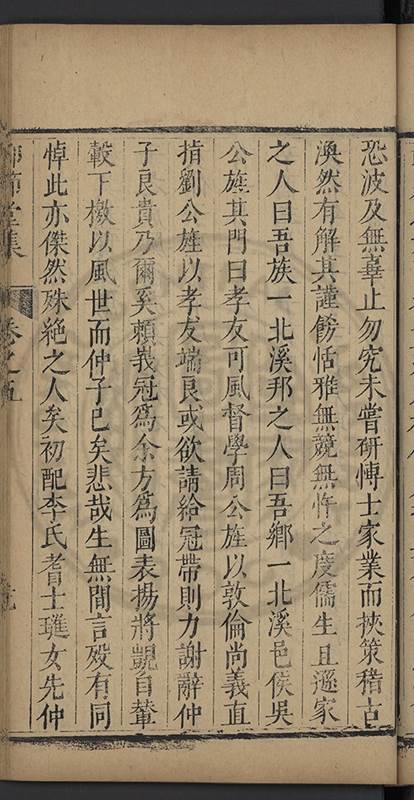 恐波及無辜止勿究未嘗研慱士家業而挾策稽古
渙然有解其謹飭恬雅無競無忤之度儒生且遜家
之人曰吾族一北溪邦之人曰吾鄉一北溪邑侯吳
公旌其門曰孝友可風督學周公旌以敦倫尚義直
指劉公旌以孝友端良或欲請給冠帶則力謝辭仲
子良貴乃爾奚賴峩冠爲余方爲圖表揚將覬自輦
轂下檄以風世而仲子已矣悲哉生無間言殁有同
悼此亦傑然殊絶之人矣初配李氏耆士璡女先仲
節堂集
卷之五